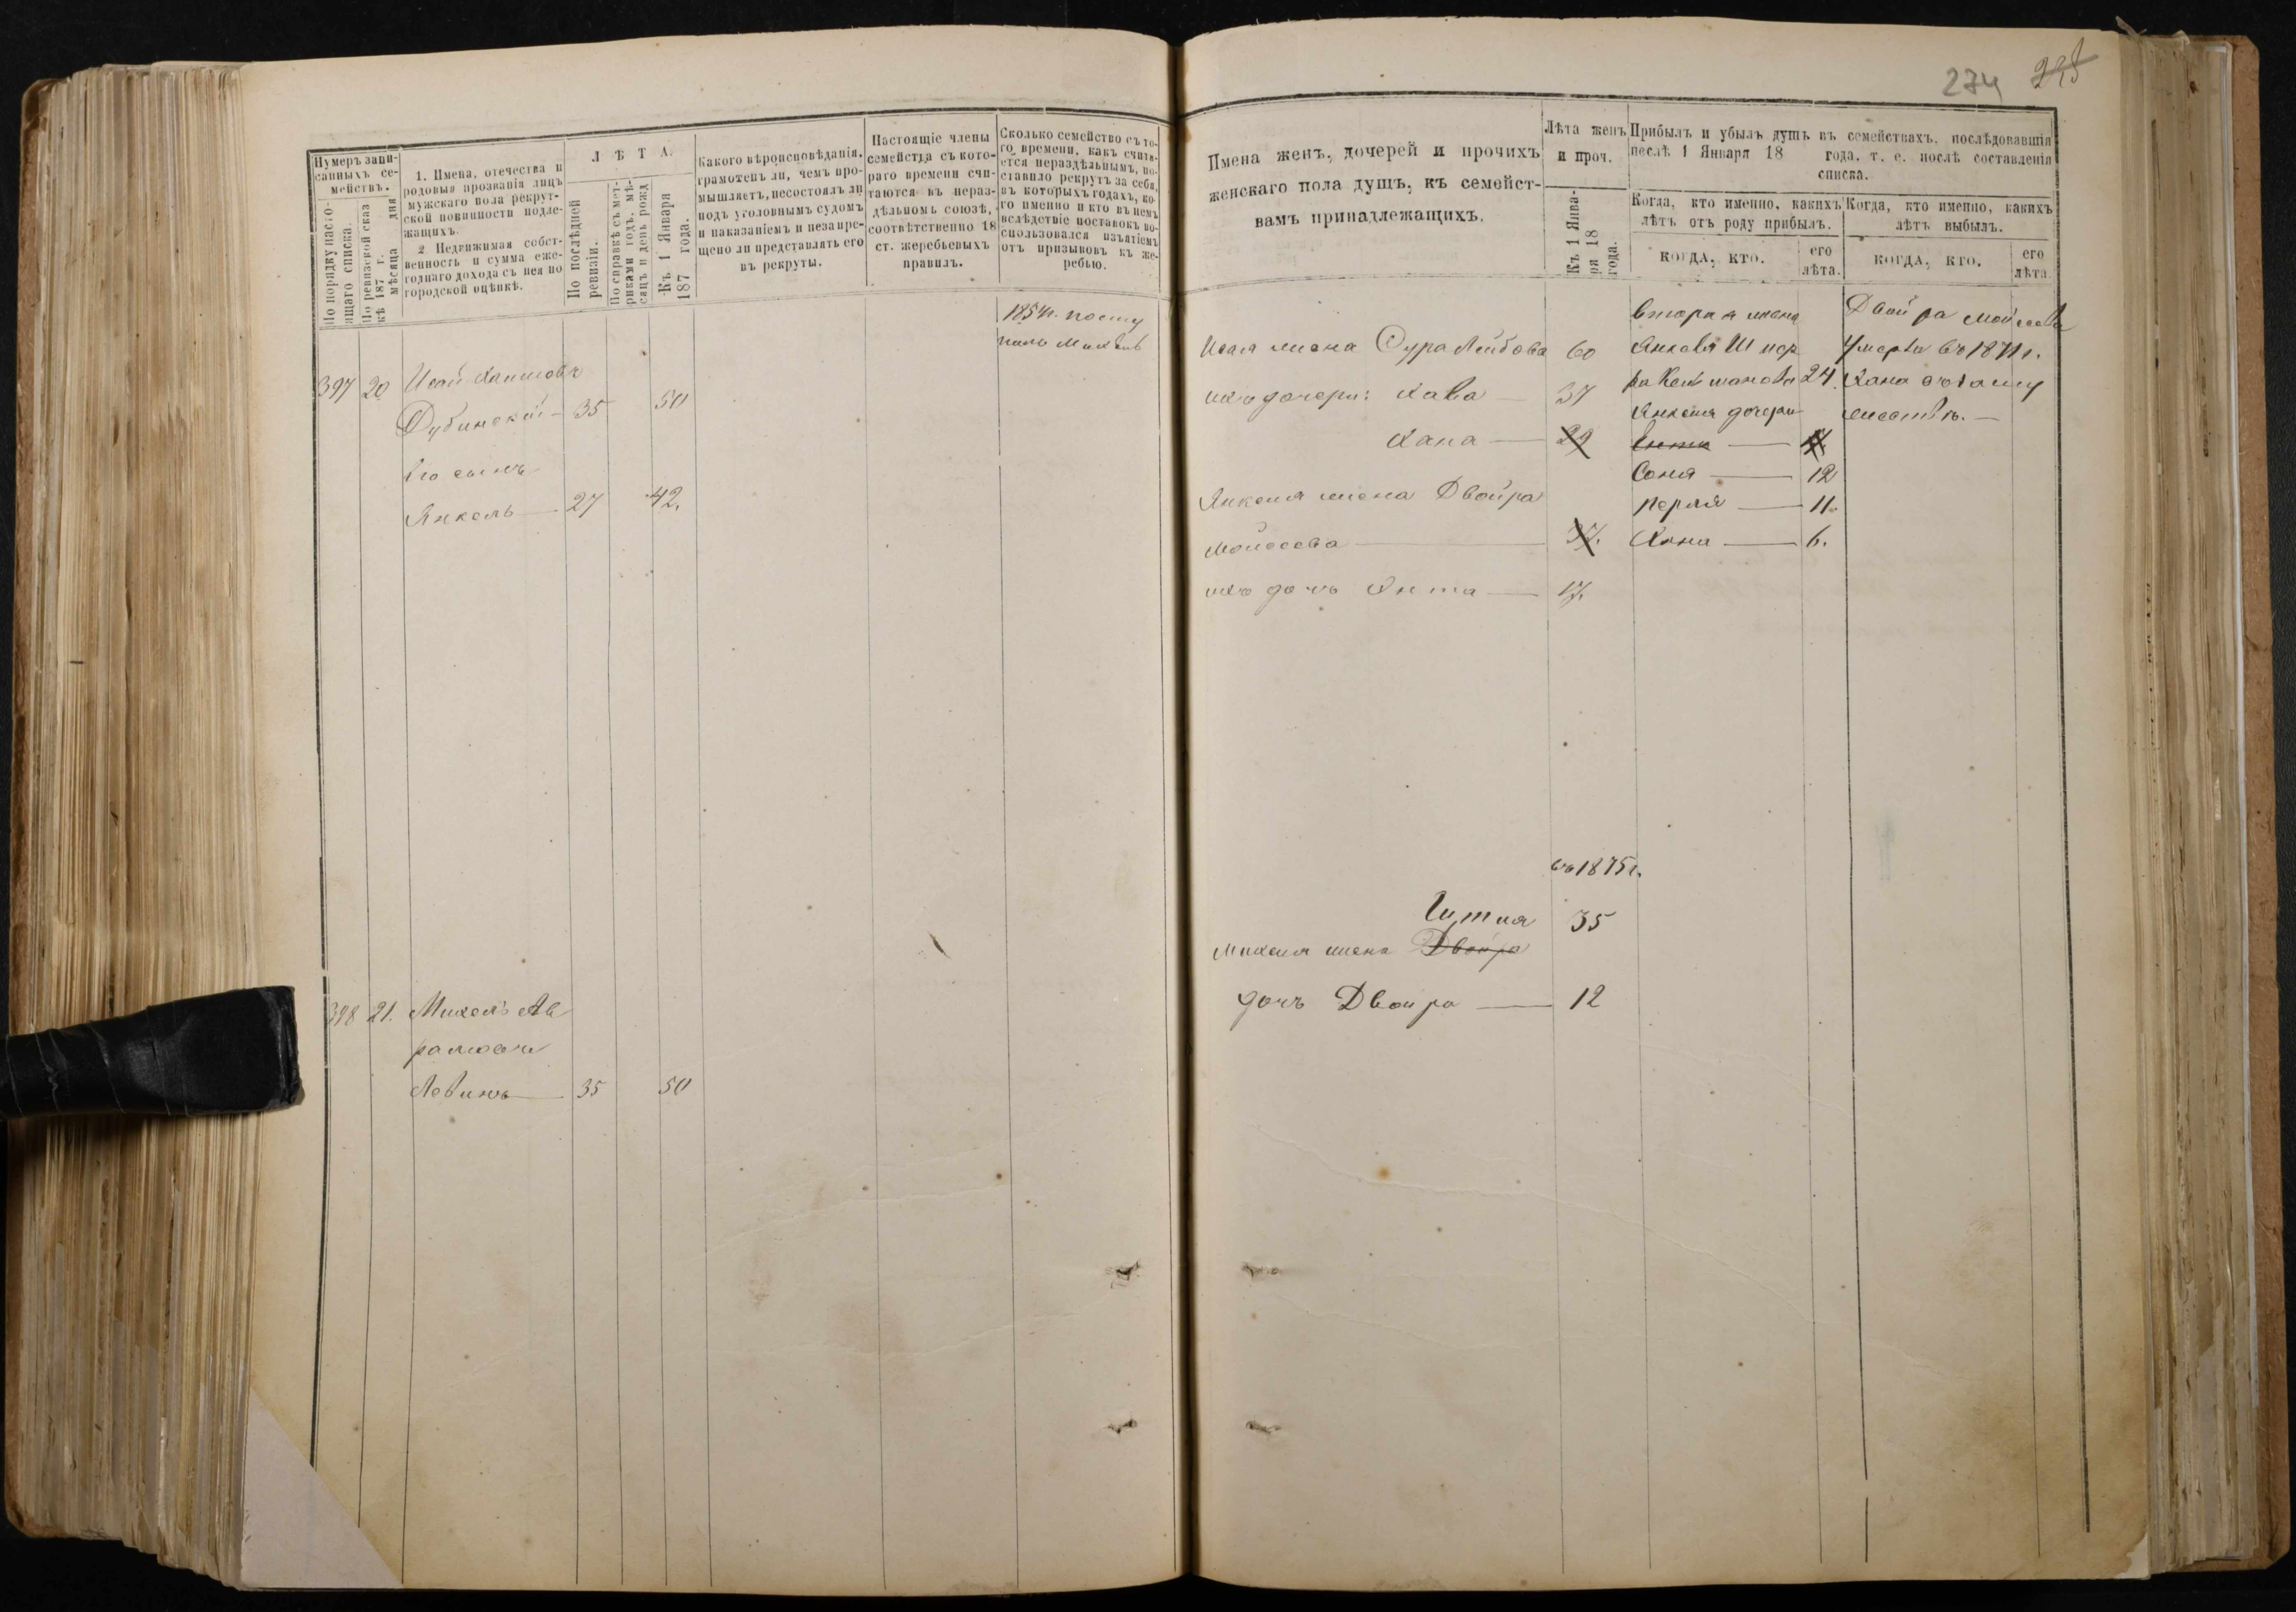 Нумеръ запи-
санныхъ се-
мействъ.
По порядку насто-
ящаго списка.
По ревизской сказ
кѣ 187 г.
мѣсяца дня
1. Имена, отечества и
родовыя прозванія лицъ
мужскаго пола рекрут-
ской повинности подле-
жащихъ.
2. Недвижимая собст-
венность и сумма еже-
годнаго дохода съ нея по
городской оцѣнкѣ.
ЛѢТА.
По послѣдней
ревизіи.
По справкѣ съ мет-
риками годъ, мѣ-
сяцъ и день рожд
Къ 1 Января
187 года.
Какого вѣроисповѣданія,
грамотенъ ли, чемъ про-
мышляетъ, несостоялъ ли
подъ уголовнымъ судомъ
и наказаніемъ и незапре-
щено ли представлять его
въ рекруты.
Настоящіе члены
семейства съ кото-
раго времени счи-
таются въ нераз-
дѣльномъ союзѣ,
соотвѣтственно 18
ст. жеребьевыхъ
правилъ.
Сколько семейство съ то-
го времени, какъ счита-
ется нераздѣльнымъ, по-
ставило рекрутъ за себя,
въ которыхъ годахъ, ко-
го именно и кто въ немъ
вслѣдствіе поставокъ во-
спользовался изъятіемъ
отъ призывовъ къ же-
ребью.
397 20 Исай Хаимовъ
Дубинскій 35 50
Его сынъ
Янкель 27 42.
398 21. Михель Ав
рамовъ
Левинъ 35 50
274 228
Имена женъ, дочерей и прочихъ
женскаго пола душъ, къ семейст-
вамъ принадлежащихъ.
Лѣта женъ
и проч.
Къ 1 Янва-
ря 18
года.
Прибыль и убыль душъ въ семействахъ, послѣдовавшія
послѣ 1 Января 18 года, т. е. послѣ составленія
списка.
Когда, кто именно, какихъ
лѣтъ отъ роду прибылъ.
КОГДА, КТО.
его
лѣта.
Когда, кто именно, какихъ
лѣтъ выбылъ.
КОГДА, КТО.
его
лѣта.
Исая жена Сура Лейбова 60
ихъ дочери: Хава 37
Хана 29
Янкеля жена Двойра
Мойсеева 37.
ихъ дочь Энта 17.
вторая жена
24.
Янкеля дочери
Соня 12
Перля 11.
Хана 6.
Двойра Мойсеева
умерла въ 1871 г.
Хана въ
въ 1875 г.
Гутля 35
Михеля жена Двойра
дочь Двойра 12